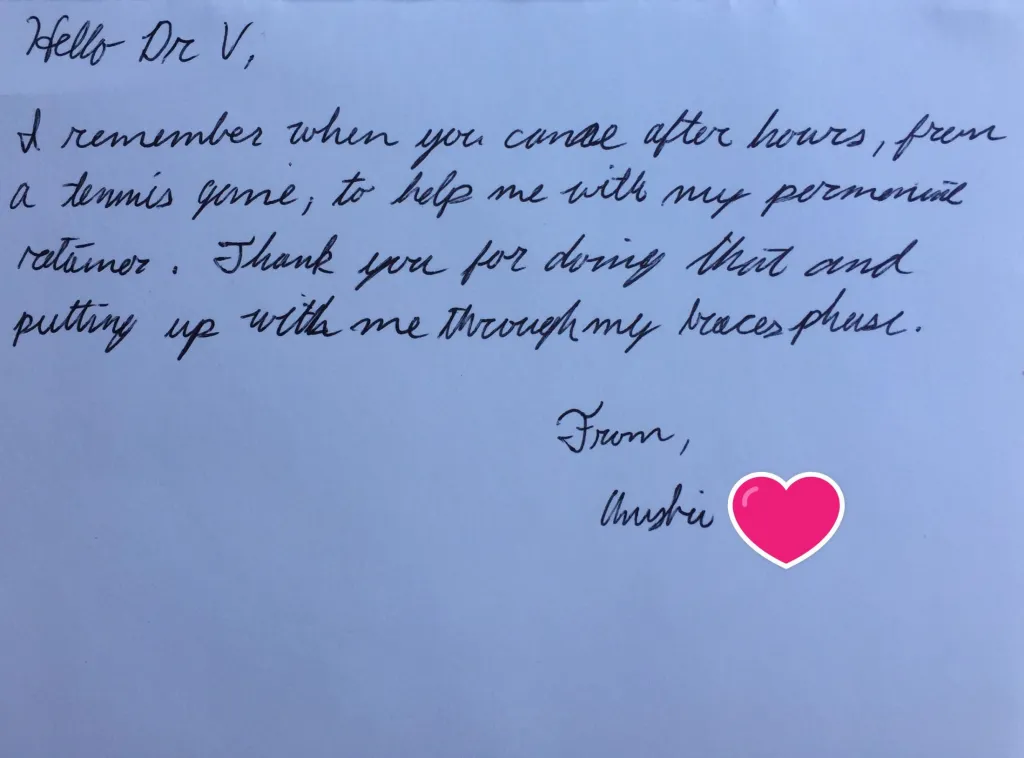 Hello Dr V,
I remember when you came after hours, from
a tennis game, to help me with my permenint
retainer. Thank you for doing that and
putting up with me through my braces phase.
From,